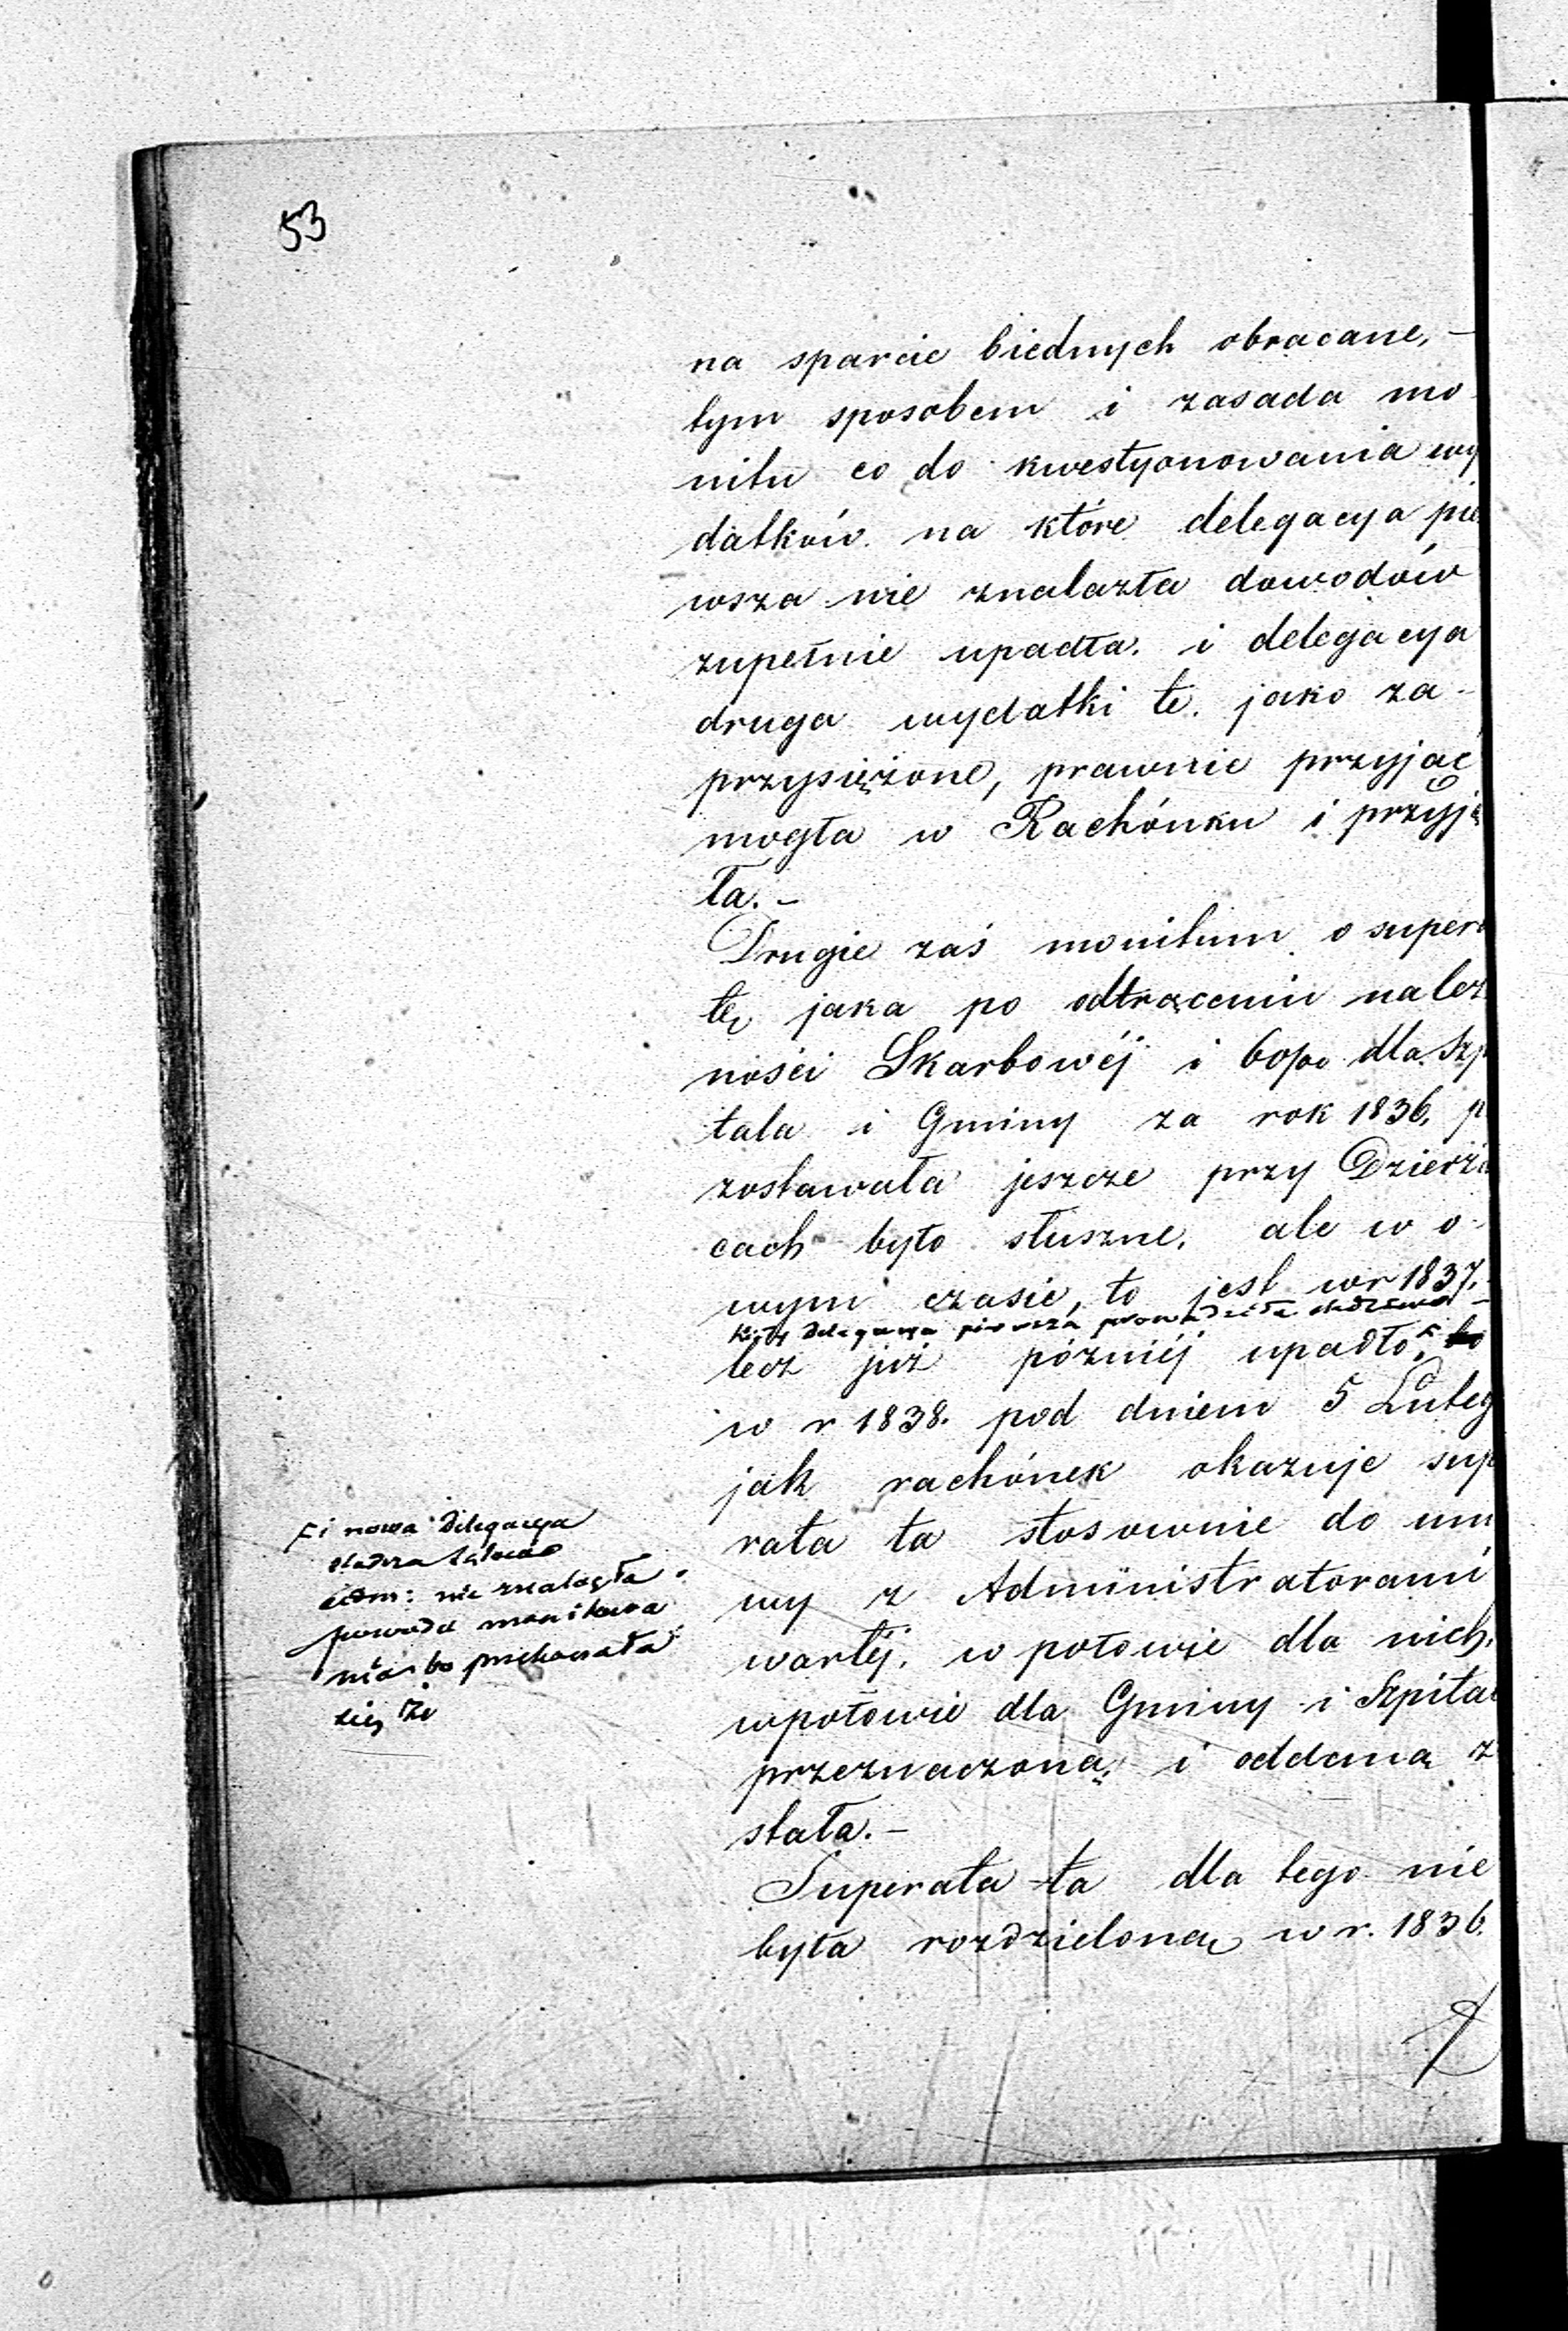 53
na sparcie biednych obracane, –
tym sposobem i zasada mo
nitu co do kwestyonowania wy
datków na które delegacya pie
wsza nie znalazła dowodów
zupełnie upadła. i delegacya
druga wydatki te. jako za-
przysiężone, prawnie przyjąć
mogła w Rachónku i przyję
ła. –
Drugie zaś monitum o supera
tę, jaka po odtrąceniu należ
ności Skarbowéj i dla Szp
tala i Gminy za rok 1836. p
zostawała jeszcze przy Dzierża
cach było słuszne, ale w o-
wym czasie, to jest w r 1837. –
kiedy delegacya pierwsza prowadziła
lecz już późniéj upadło, bo
w r 1838. pod dniem 5 Luteg
jak rachónek okazuje sup
rata ta stosownie do um
wy z Administratorami
wartéj. w połowie dla nich,
w połowie dla Gminy i Szpital
przeznaczoną, i oddaną z
stała. –
Superata ta dla tego nie
była rozdzieloną w r. 1836.
i nowa delegacya
nie znalazła
powodu monitowa
nia bo przekonała
się że